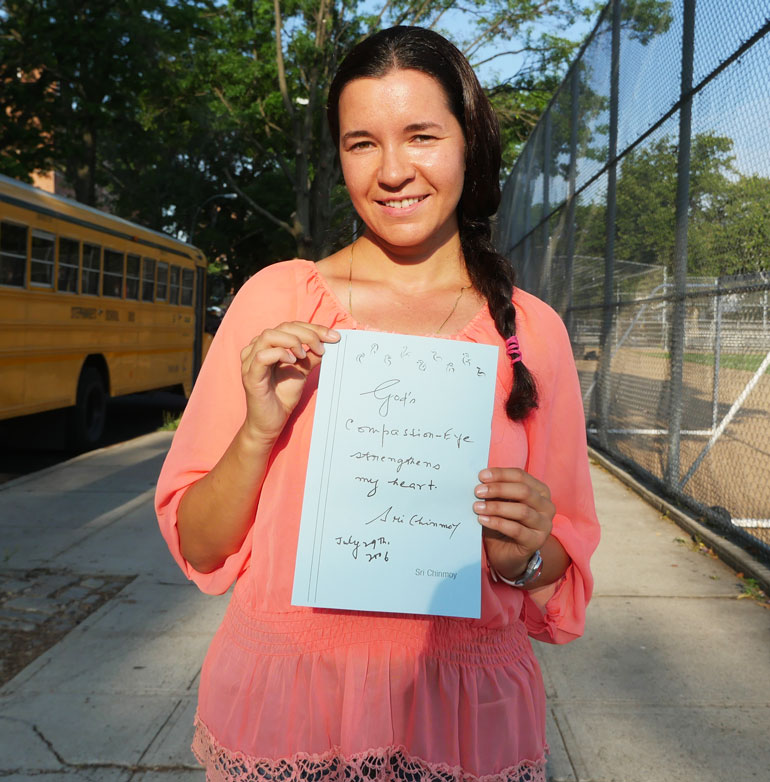 God's
Compassion-Eye
strengthens
my heart.
Sri Chinmoy
July 29th,
2006
Sri Chinmoy